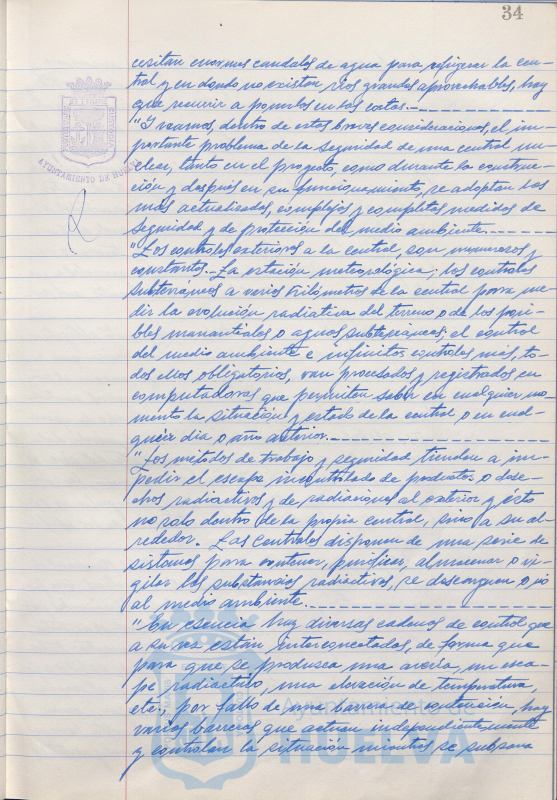 34
cesitan enormes caudales de agua para refrigerar la cen-
tral y en donde no existan rios grandes aprovechables, hay
que recurrir a ponerlos en las costas.
"Y veamos, dentro de estas breves consideraciones, el im-
portante problema de la seguridad de una central nu-
clear, tanto en el proyecto, como durante la construc-
ción y después en su funcionamiento, se adoptan las
más actualizadas, complejas y completas medidas de
seguridad y de protección del medio ambiente.
"Los controles exteriores a la central, son numerosos y
constantes. La estación meteorológica; los controles
subterráneos a varios kilómetros de la central para me-
dir la evolución radiativa del terreno o de los posi-
bles manantiales o aguas subterráneas; el control
del medio ambiente e infinitos controles más, to-
dos ellos obligatorios, van procesados y registrados en
computadoras que permiten saber en cualquier mo-
mento la situación y estado de la central o en cual-
quier dia o año anterior.
"Los métodos de trabajo y seguridad tienden a im-
pedir el escape incontrolado de productos o dese-
chos radiactivos y de radiaciones al exterior y ésto
no solo dentro de la propia central, sino a su al-
rededor. Las Centrales disponen de una serie de
sistemas para contener, purificar, almacenar o vi-
gilar las substancias radiactivas, se descarguen o no
al medio ambiente.
"En esencia hay diversas cadenas de control que
a su vez están interconectadas, de forma que
para que se produzca una avería, un esca-
pe radiactivo, una elevación de temperatura,
etc., por fallo de una barrera de contención, hay
varias barreras que actuan independientemente
y controlan la situación mientras se subsana
AYUNTAMIENTO DE HUELVA
Ayuntamiento
HUELVA